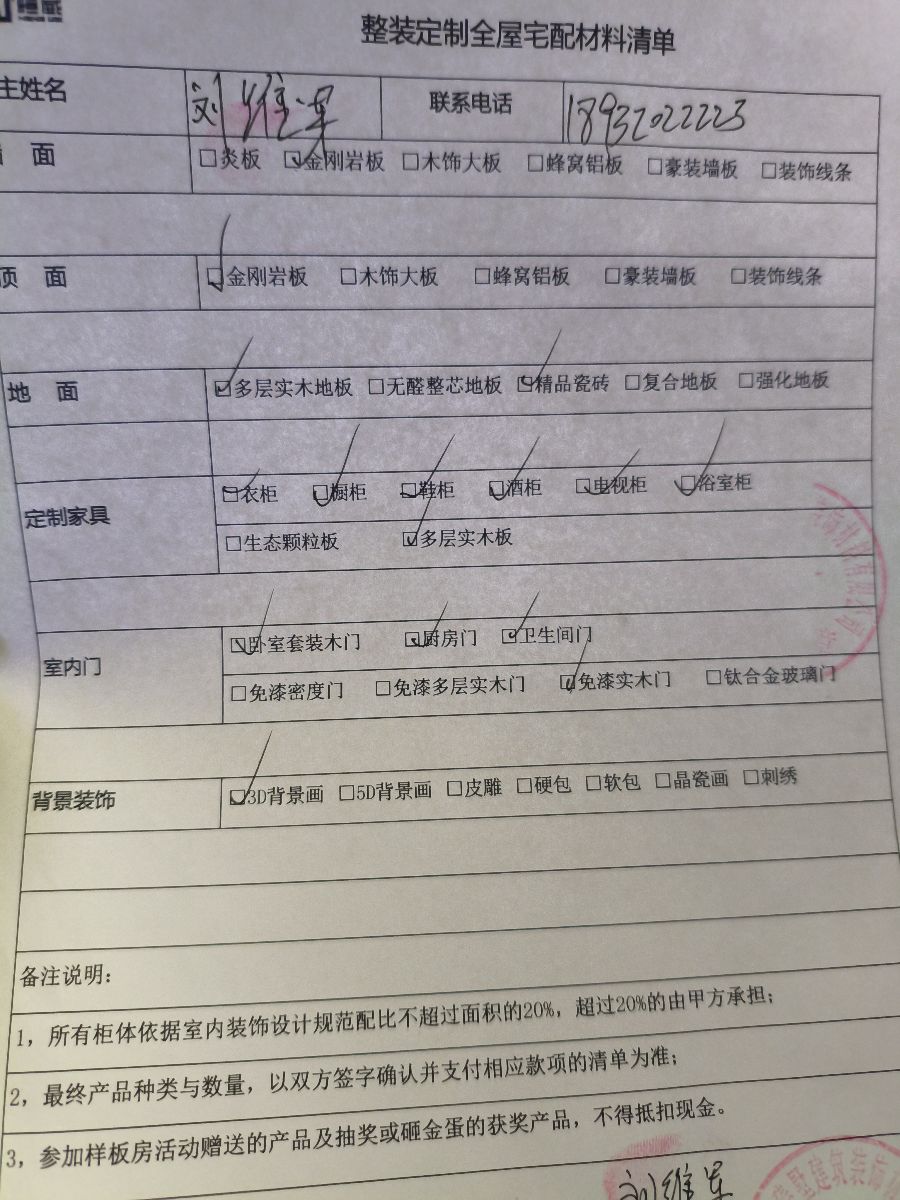 整装定制全屋宅配材料清单
主姓名 刘维军 联系电话 18932022223
面 □炎板 ☑金刚岩板 □木饰大板 □蜂窝铝板 □豪装墙板 □装饰线条
顶 面 ☑金刚岩板 □木饰大板 □蜂窝铝板 □豪装墙板 □装饰线条
地 面 ☑多层实木地板 □无醛整芯地板 ☑精品瓷砖 □复合地板 □强化地板
定制家具 ☑衣柜 ☑橱柜 ☑鞋柜 ☑酒柜 ☑电视柜 ☑浴室柜
□生态颗粒板 ☑多层实木板
室内门 ☑卧室套装木门 ☑厨房门 ☑卫生间门
□免漆密度门 □免漆多层实木门 ☑免漆实木门 □钛合金玻璃门
背景装饰 ☑3D背景画 □5D背景画 □皮雕 □硬包 □软包 □晶瓷画 □刺绣
备注说明:
1，所有柜体依据室内装饰设计规范配比不超过面积的20%，超过20%的由甲方承担；
2，最终产品种类与数量，以双方签字确认并支付相应款项的清单为准；
3，参加样板房活动赠送的产品及抽奖或砸金蛋的获奖产品，不得抵扣现金。
刘维军
建筑装饰